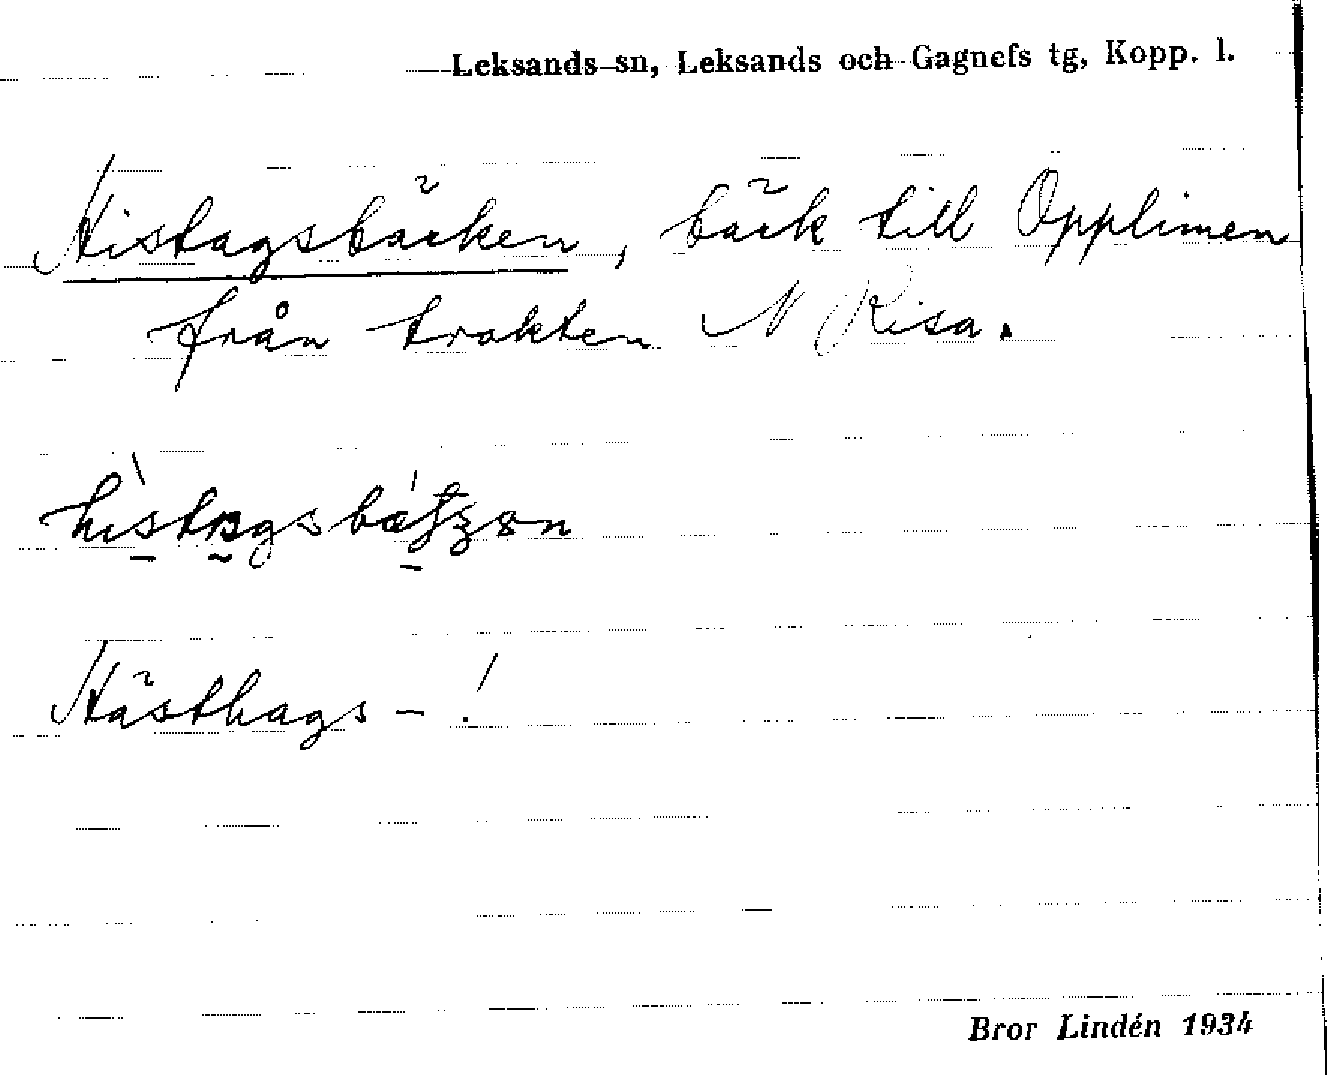 Leksands sn, Leksands och Gagnefs tg, Kopp. l.
Histagsbäcken, bäck till Opplimen
från trakten N Risa.
Hästhags - !
Bror Lindén 1934